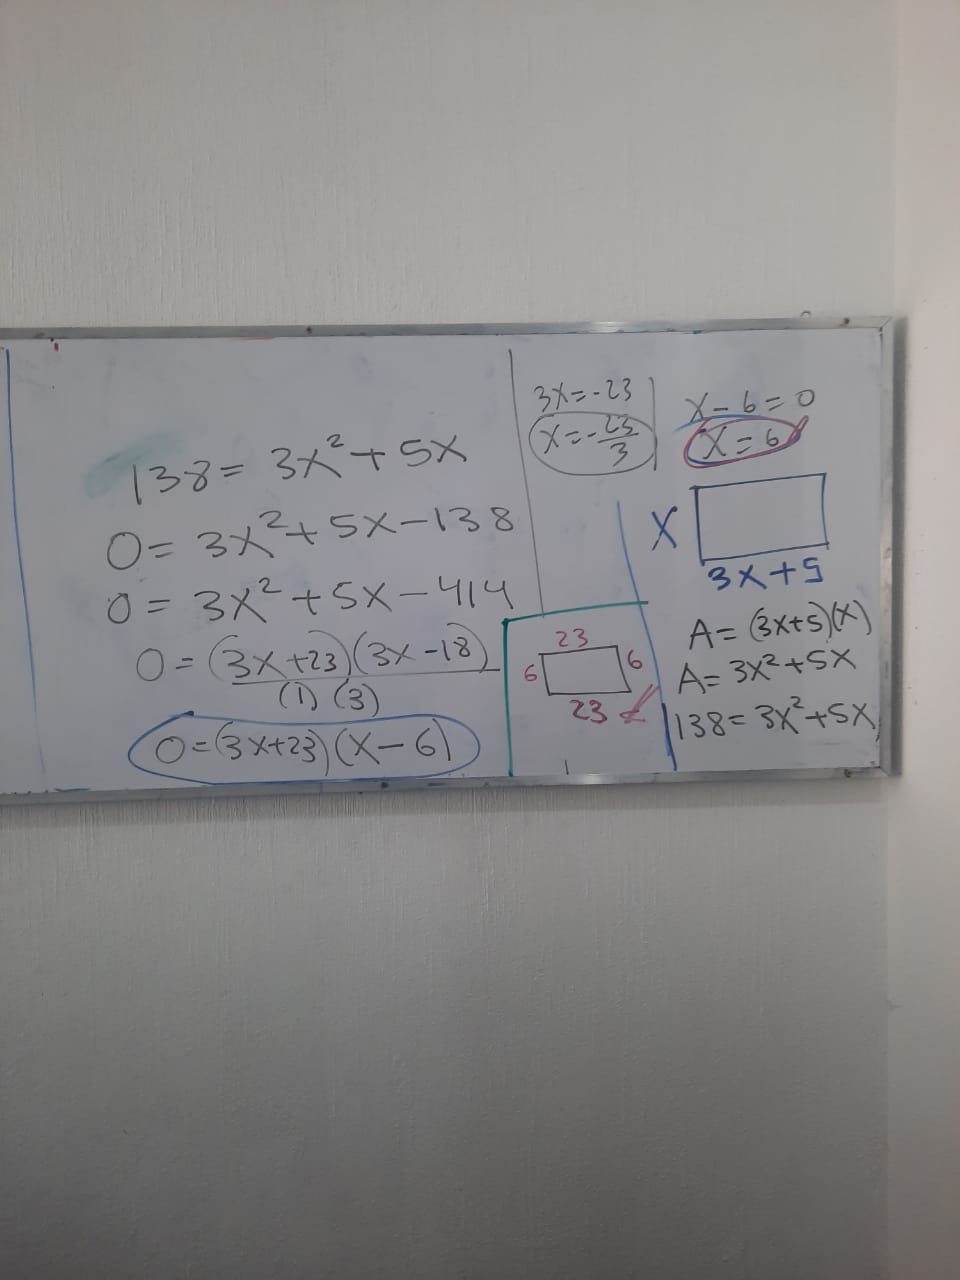 138 = 3x² + 5x
0 = 3x² + 5x - 138
0 = 3x² + 5x - 414
0 = (3x +23)(3x -18)
(1) (3)
0 = (3x+23)(x - 6)
3x = -23
x = -23/3
x - 6 = 0
x = 6
x
3x + 5
A = (3x+5)(x)
A = 3x² + 5x
138 = 3x² + 5x
23
6 6
23